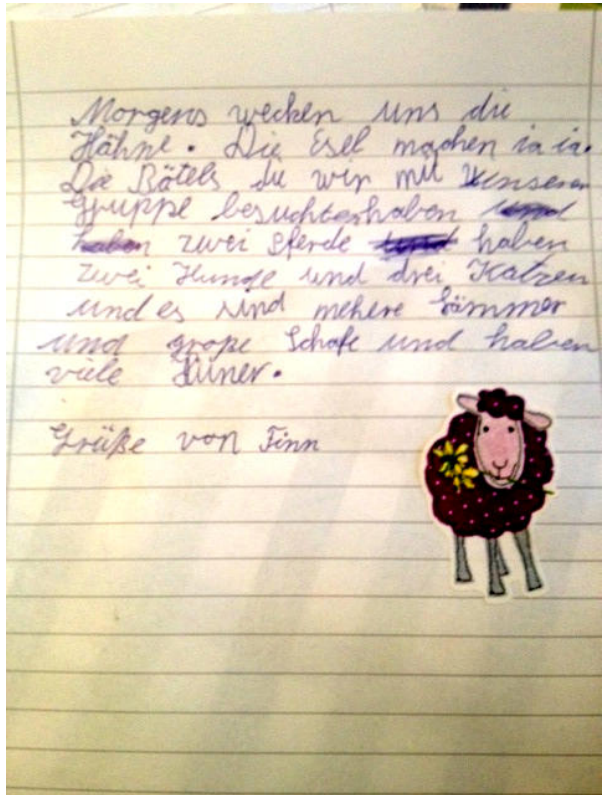 Morgens wecken uns die
Hähne. Die Esel machen ia ia.
Die Bätels die wir mit unserer
Gruppe besuchten haben und
haben zwei Pferde und haben
zwei Hunde und drei Katzen
und es sind mehere Lämmer
und große Schafe und haben
viele Hüner.
Grüße von Finn